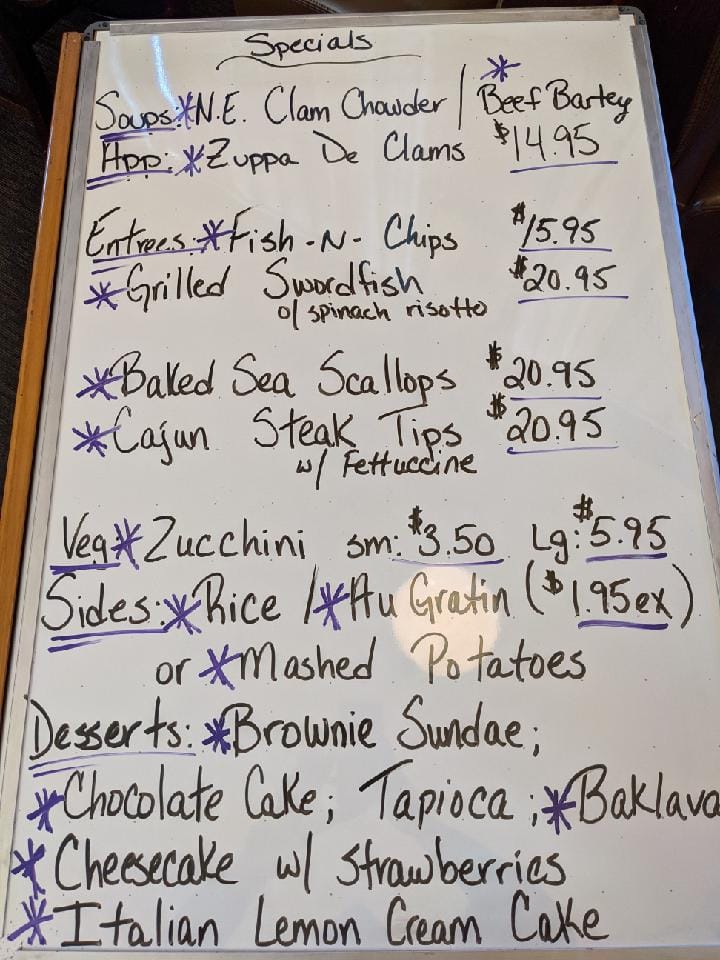 Specials
Soups: *N.E. Clam Chowder / *Beef Barley
App: *Zuppa De Clams $14.95
Entrees: *Fish-N-Chips $15.95
*Grilled Swordfish $20.95
o/ spinach risotto
*Baked Sea Scallops $20.95
*Cajun Steak Tips $20.95
w/ Fettuccine
Veg *Zucchini sm: $3.50 Lg: $5.95
Sides: *Rice / *Au Gratin ($1.95 ex)
or *Mashed Potatoes
Desserts: *Brownie Sundae;
*Chocolate Cake; Tapioca; *Baklava
*Cheesecake w/ strawberries
*Italian Lemon Cream Cake